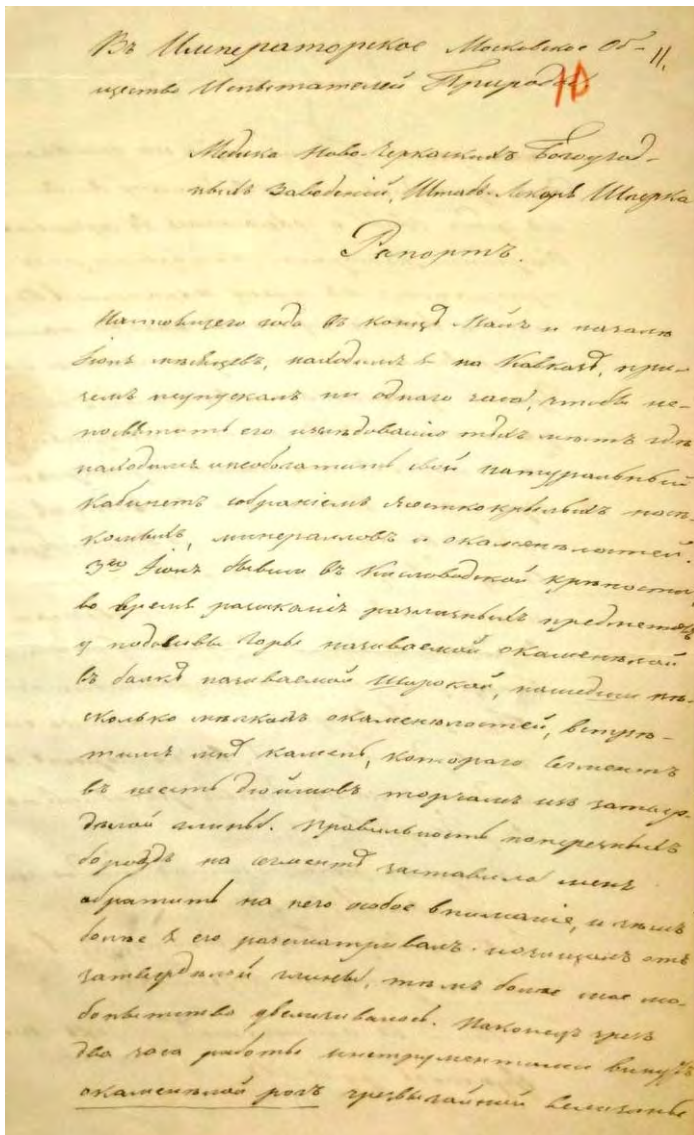 Въ Императорское Московское Об-
11.
щество Испытателей Природы
10
Медика Ново-Черкаскихъ Богоугод-
ныхъ Заведеній, Штабъ-Лекаря Шперка
Рапортъ.
Настоящего года въ концѣ Маія и началѣ
Іюня мѣсяцевъ, находился я на Кавказѣ, при-
чемъ неупускалъ ни одного часа, чтобы не-
посвѣтить его изслѣдованію тѣхъ мѣстъ гдѣ
находился и необогатить свой натуральный
Кабинетъ собраніемъ жосткокрылыхъ насѣ-
комыхъ, минераловъ и окаменѣлостей.
3го Іюня бывши въ Кисловодской крѣпости,
во время разысканія различныхъ предметовъ
у подошвы горы называемой окаменѣлой
въ балкѣ называемой Широкой, нашедши нѣ-
сколько мѣлкихъ окаменѣлостей, встрѣ-
тился мнѣ камень, котораго сегментъ
въ шесть дюймовъ торчалъ изъ затвер-
дѣлой глины. Правильность поперечныхъ
бороздъ на сегментѣ заставила меня
обратить на него особое вниманіе, и чѣмъ
болѣе я его разсматривалъ очищалъ отъ
затвердѣлой глины, тѣмъ болѣе мое лю-
бопытство увеличивалось. Наконецъ чрезъ
два часа работы инструментами вынулъ
окаменѣлой рогъ чрезвычайной величины